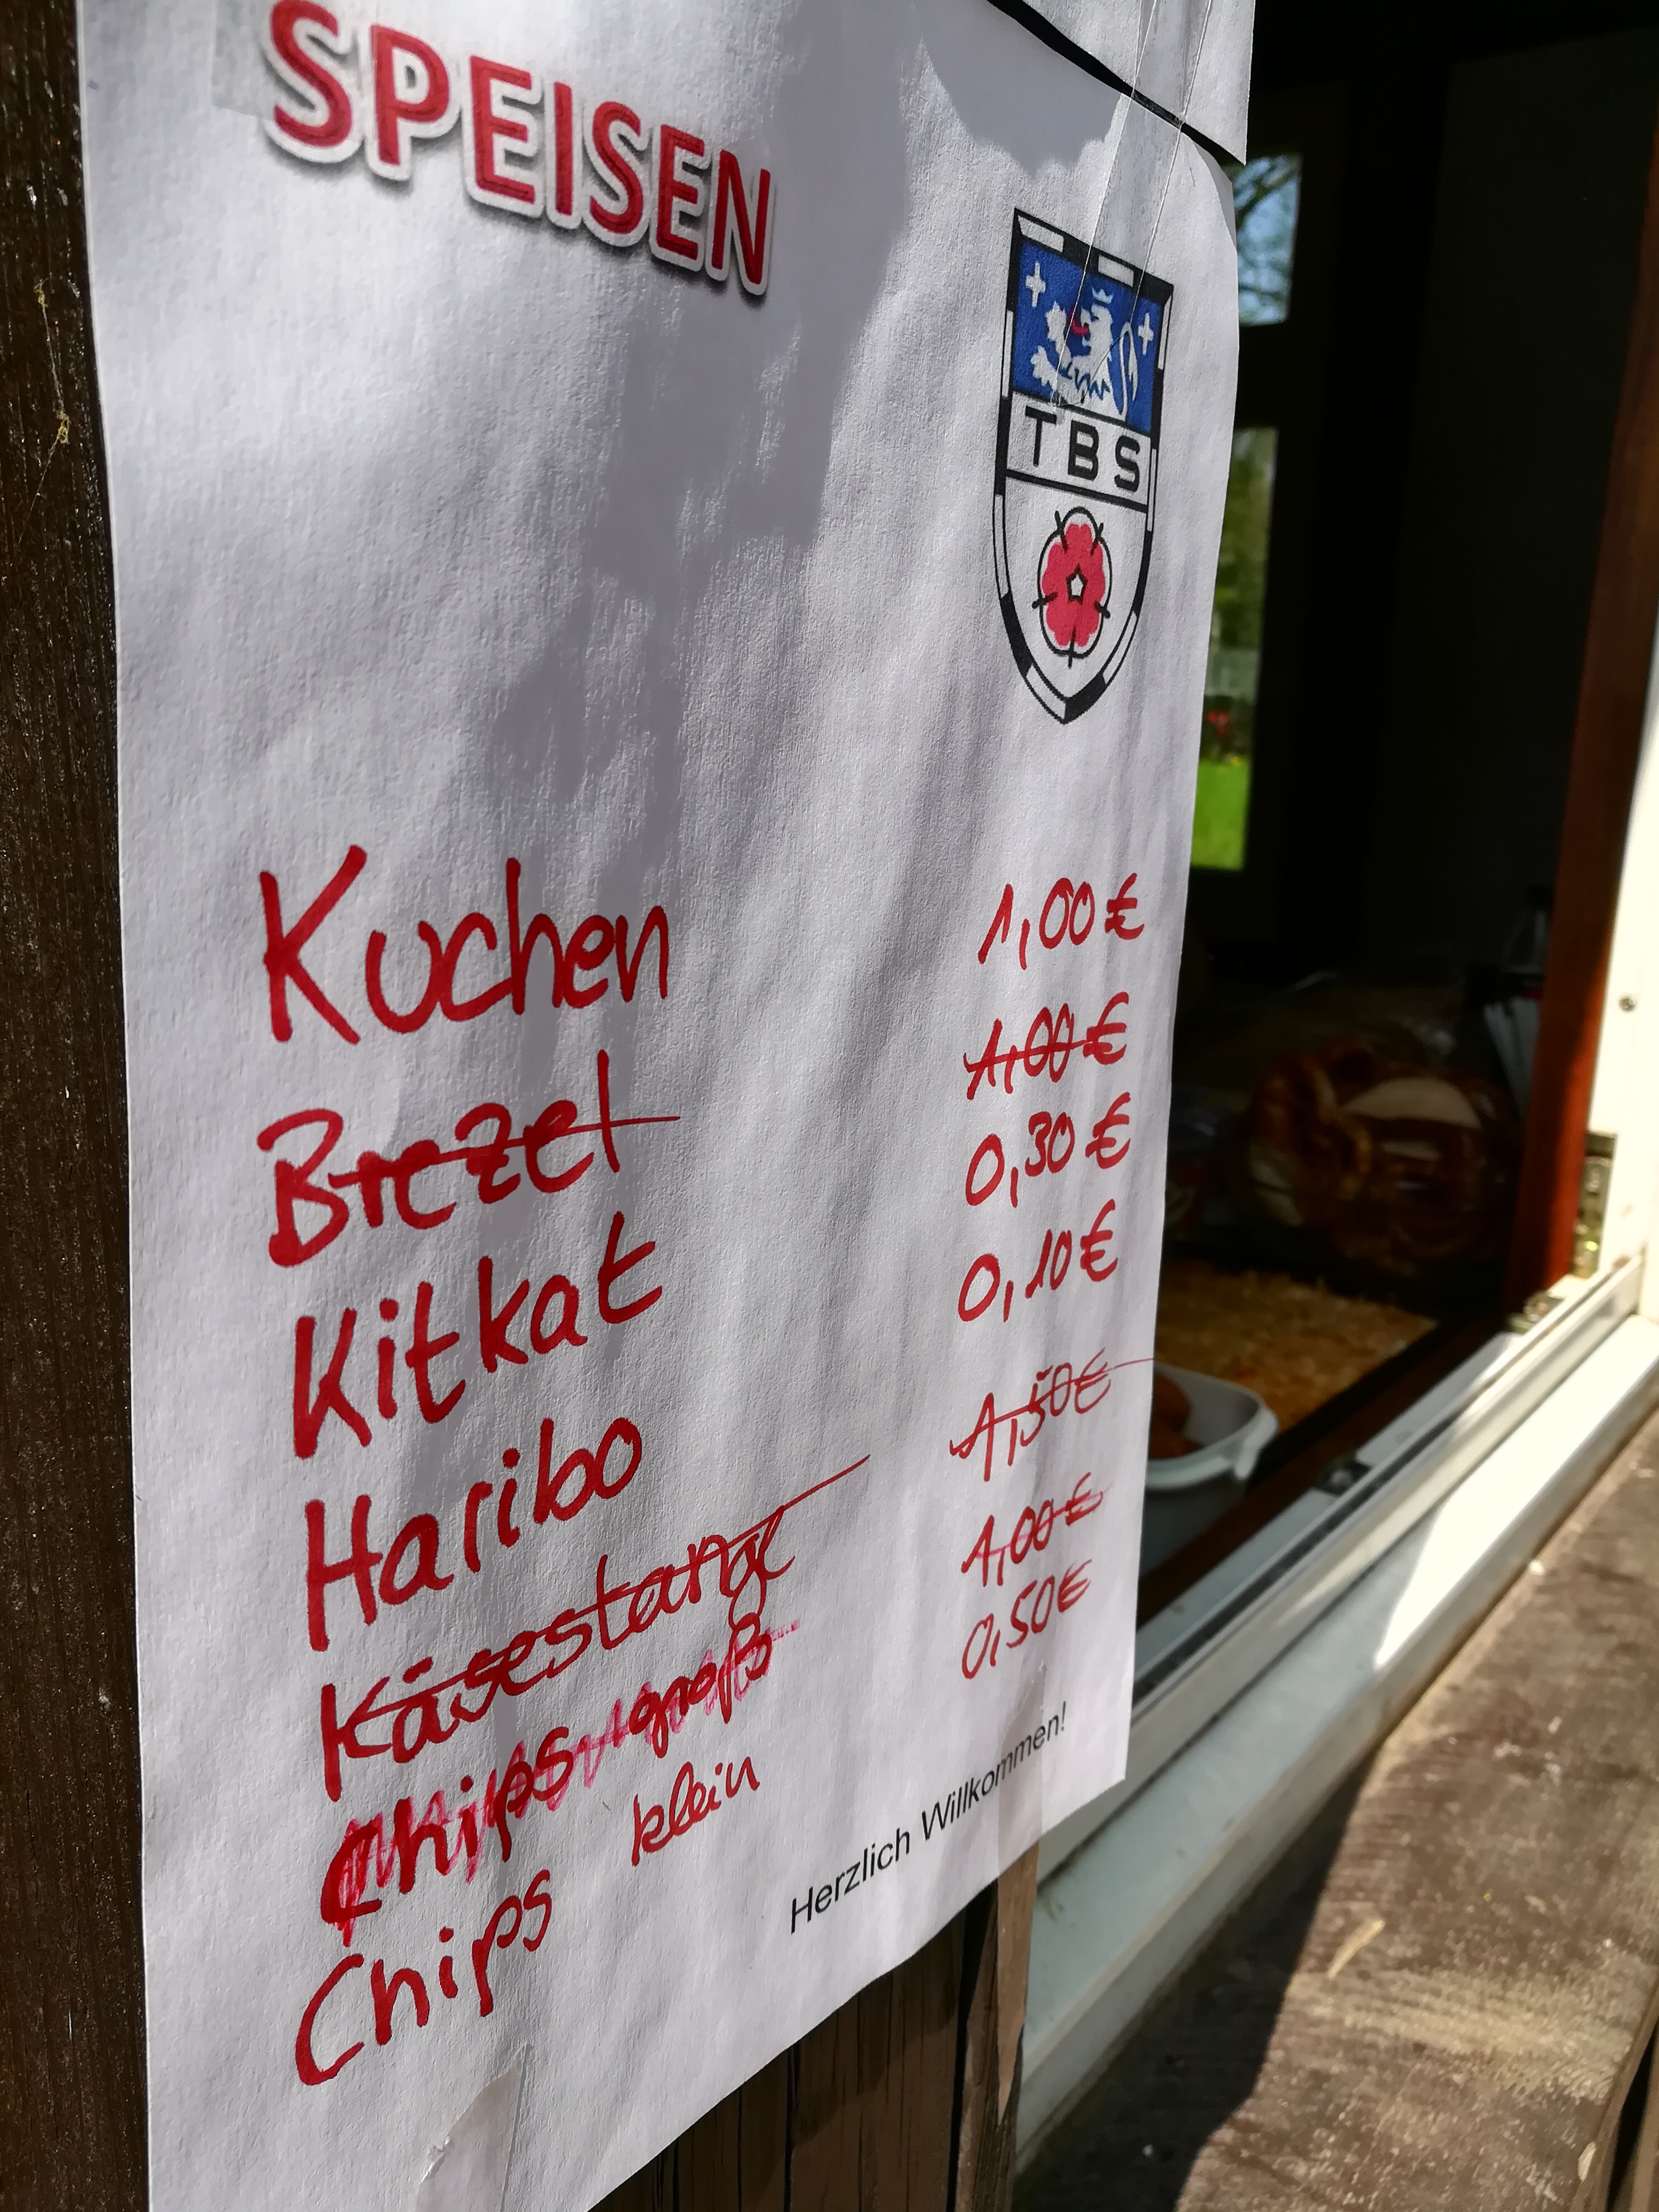 SPEISEN
TBS
Kuchen 1,00 €
Brezel 1,00 €
Kitkat 0,30 €
Haribo 0,10 €
Käsestange 1,50 €
Chips groß 1,00 €
Chips klein 0,50 €
Herzlich Willkommen!